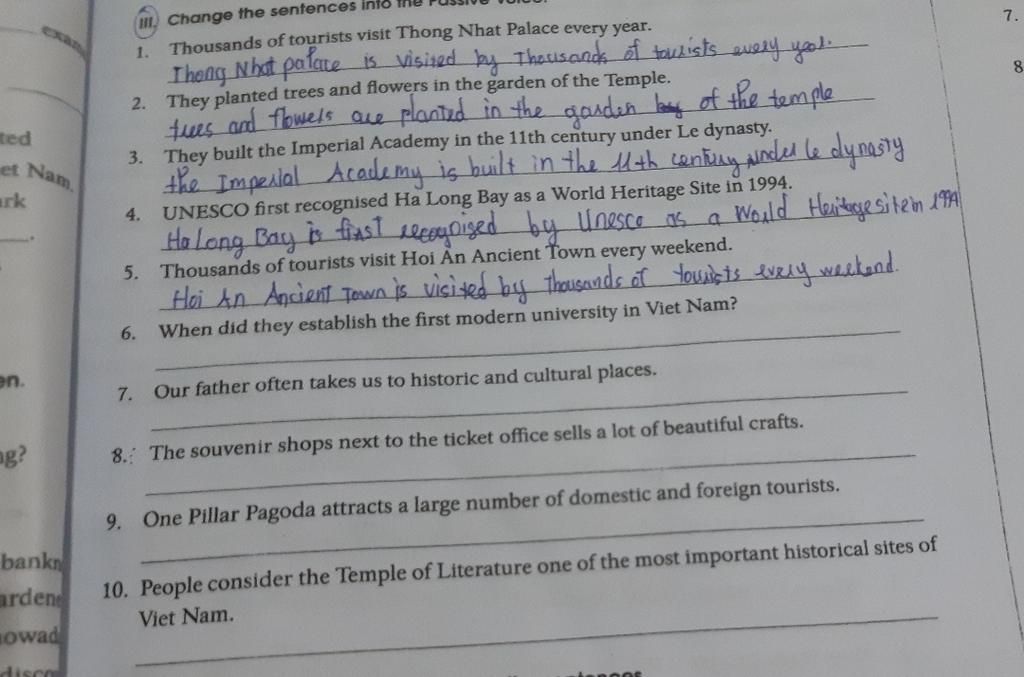 III. Change the sentences into the Passive voice.
7.
1. Thousands of tourists visit Thong Nhat Palace every year.
Thong Nhat palace is visited by Thousands of tourists every year.
8
2. They planted trees and flowers in the garden of the Temple.
trees and flowers are planted in the garden of the temple
3. They built the Imperial Academy in the 11th century under Le dynasty.
the Imperial Academy is built in the 11th century under le dynasty
4. UNESCO first recognised Ha Long Bay as a World Heritage Site in 1994.
Ha Long Bay is first recognised by Unesco as a World Heritage site in 1994
5. Thousands of tourists visit Hoi An Ancient Town every weekend.
Hoi An Ancient Town is visited by thousands of tourists every weekend.
6. When did they establish the first modern university in Viet Nam?
7. Our father often takes us to historic and cultural places.
8. The souvenir shops next to the ticket office sells a lot of beautiful crafts.
9. One Pillar Pagoda attracts a large number of domestic and foreign tourists.
10. People consider the Temple of Literature one of the most important historical sites of
Viet Nam.
exam
ted
et Nam.
ark
en.
ng?
bankn
arden
owad
disco